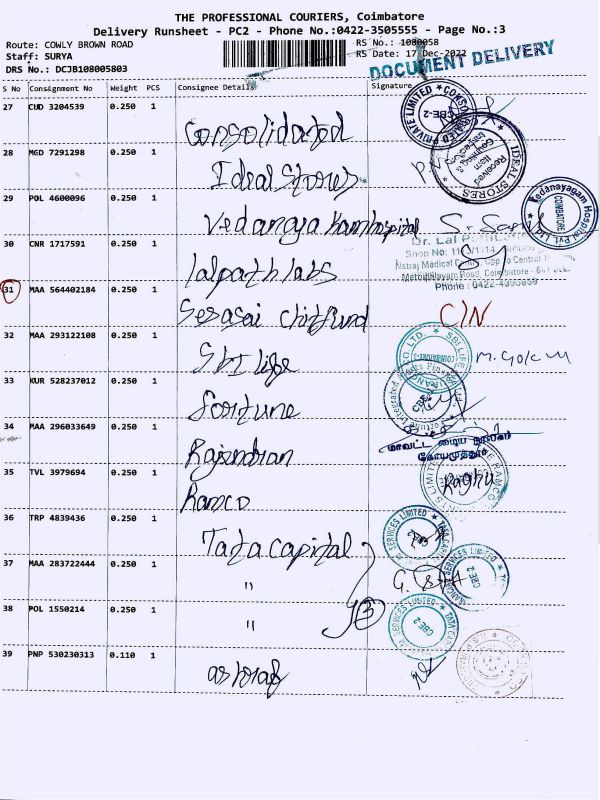 THE PROFESSIONAL COURIERS, Coimbatore
Delivery Runsheet - PC2 - Phone No.:0422-3505555 - Page No.:3
Route: COWLY BROWN ROAD
RS No.: 1080058
Staff: SURYA
RS Date: 17-Dec-2022
DRS No.: DCJB108005803
DOCUMENT DELIVERY
S No Consignment No Weight PCS Consignee Details Signature
27 CUD 3204539 0.250 1 Consolidated
28 MGD 7291298 0.250 1 Ideal Stores
29 POL 4600096 0.250 1 Vedanayakam hospital
30 CNR 1717591 0.250 1 lalpath labs
31 MAA 564402184 0.250 1 Sesasai chitfund C/N
32 MAA 293122108 0.250 1 SbI life M. Gokul
33 KUR 528237012 0.250 1 fortune
34 MAA 296033649 0.250 1 Rajendran
35 TVL 3979694 0.250 1 Ramco Raghu
36 TRP 4839436 0.250 1 Tata capital
37 MAA 283722444 0.250 1 "
38 POL 1550214 0.250 1 " 3
39 PNP 530230313 0.110 1
PRIVATE LIMITED CONSOLIDATED
CBE-2
IDEAL STORES
Received
Item
Vedanayagam Hospital Pvt.
COIMBATORE
Dr. Lal
Phone : 0422-4395959
SBI LIFE
CBE
Integrated
கோயமுத்தூர்
RAMCO
SERVICES LIMITED TATA
CBE-2
SERVICES LIMITED TATA
CBE-2